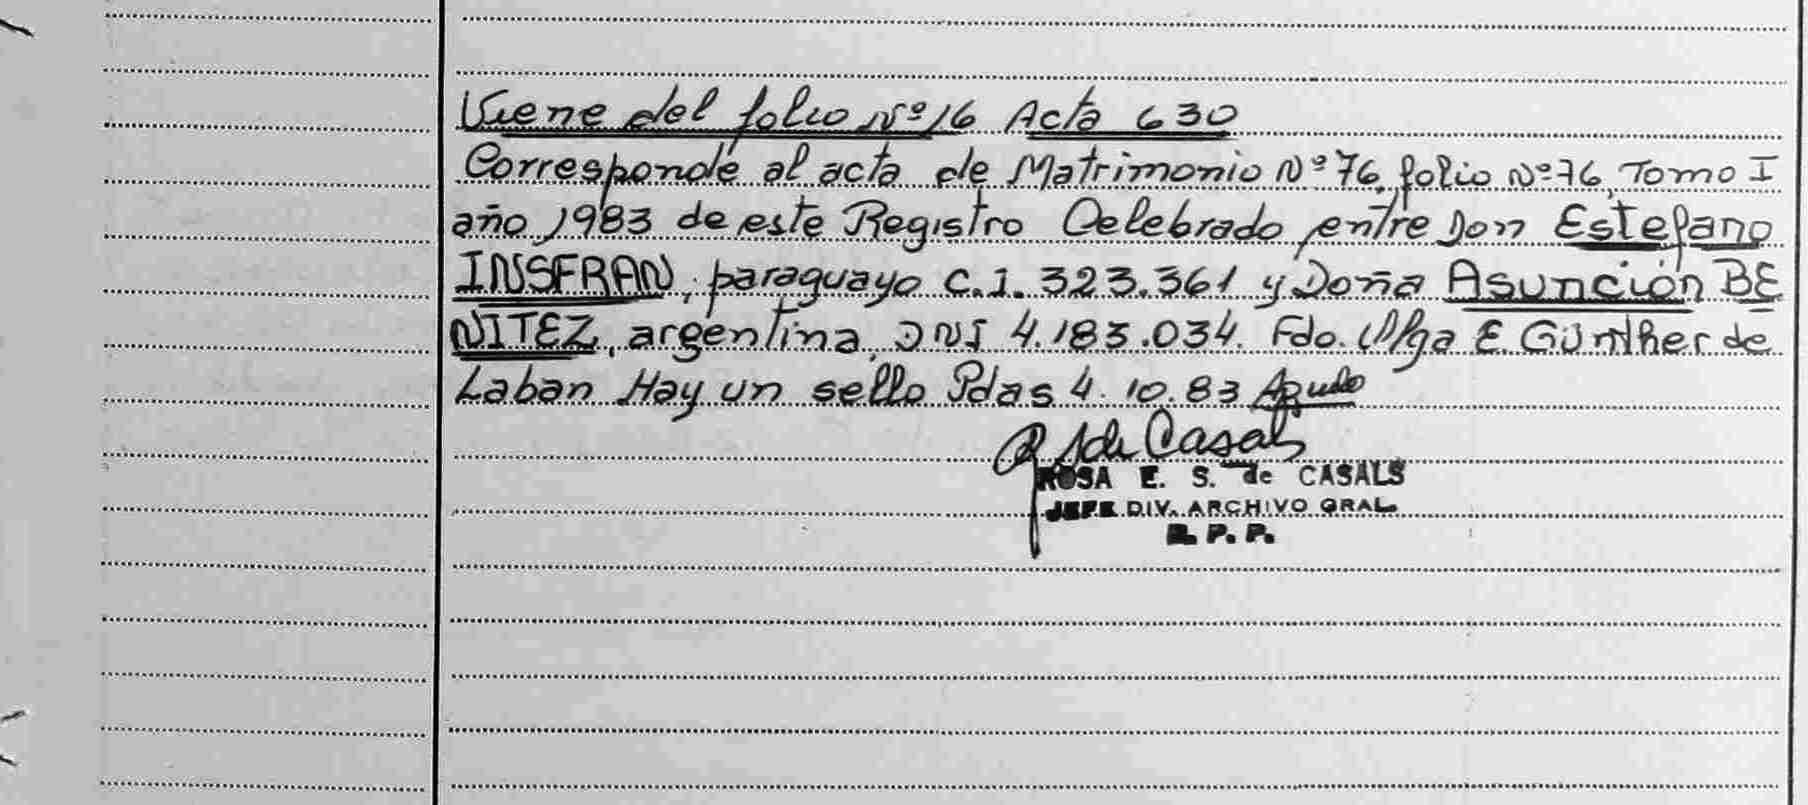 Viene del folio Nº 16 Acta 630
Corresponde al acta de Matrimonio Nº 76, folio Nº 76, Tomo I
año 1983 de este Registro Celebrado entre Don Estefano
INSFRAN, paraguayo C.I. 323.361 y Doña Asunción BE
NITEZ, argentina, DNI 4.183.034. Fdo. Olga E. Günther de
Laban Hay un sello Pdas 4.10.83
R S de Casals
ROSA E. S. de CASALS
JEFE DIV. ARCHIVO GRAL.
R. P. P.